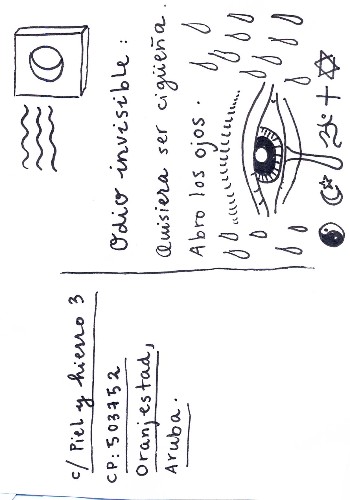 Odio invisible:
Quisiera ser cigüeña.
Abro los ojos.
c/ Piel y hierro 3
CP: 503752
Oranjestad,
Aruba.